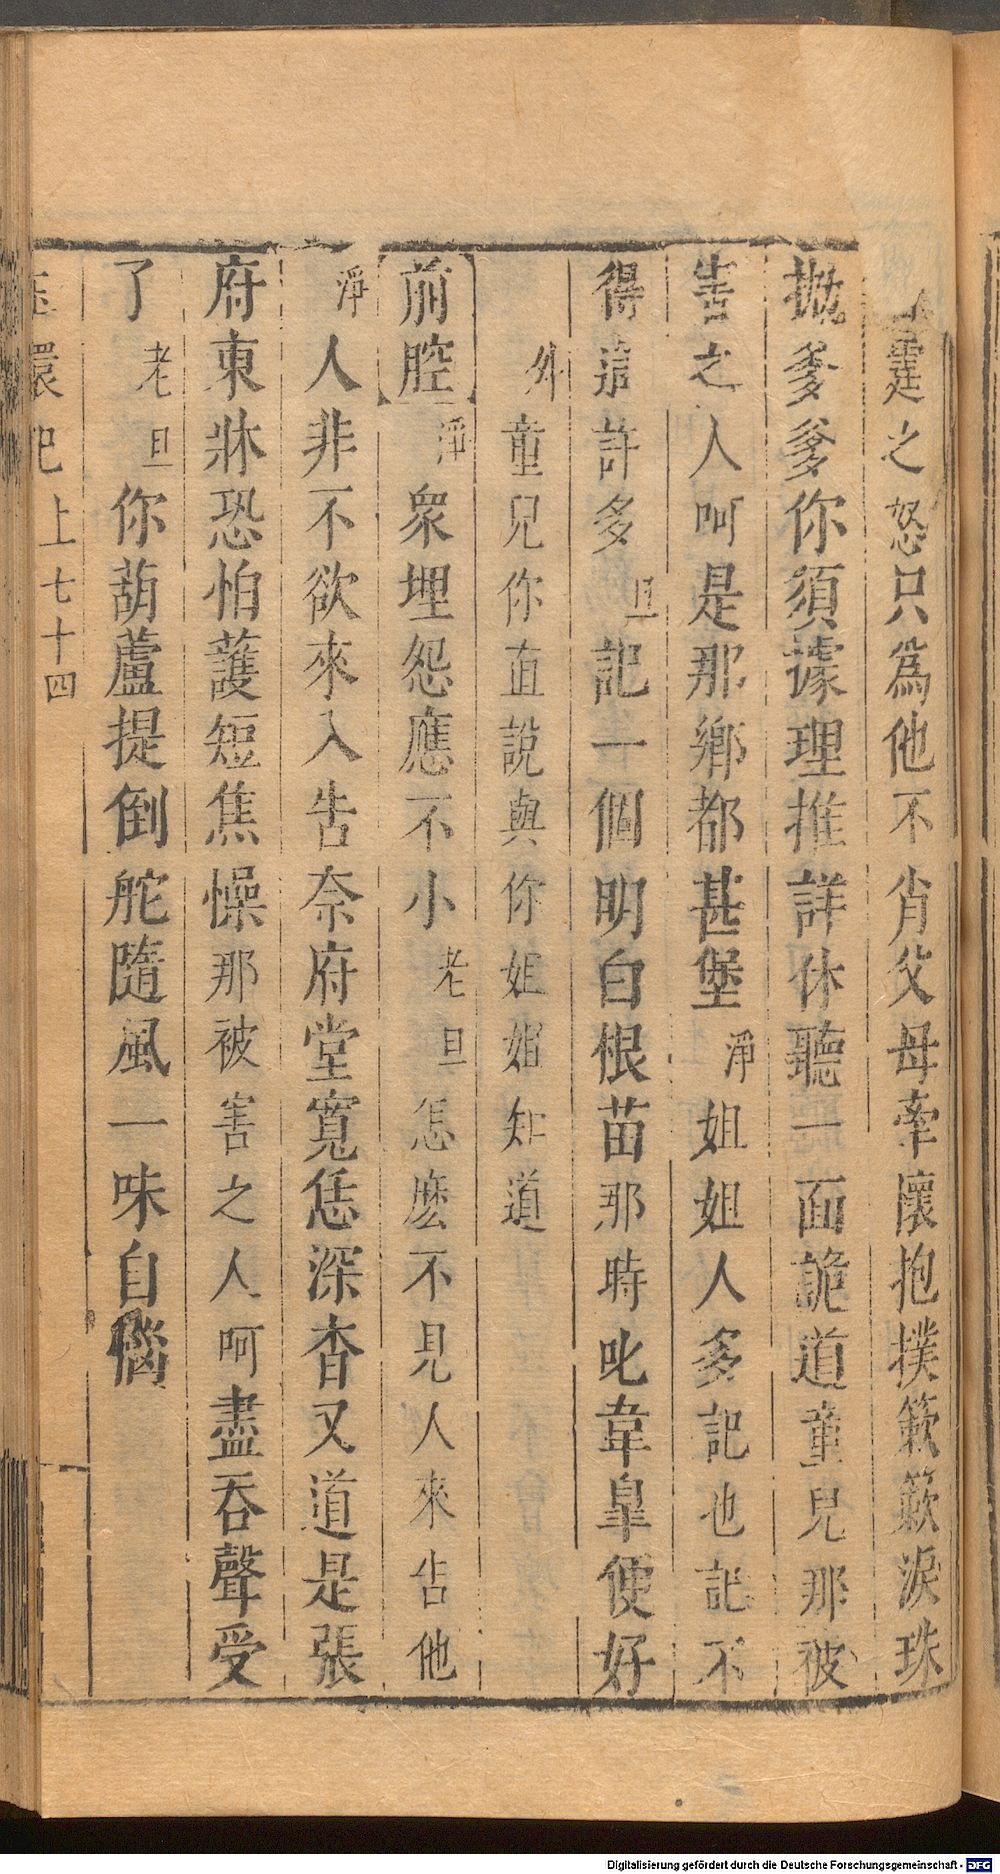 霆之怒只為他不肖父母牽懷抱撲簌簌淚珠
拋爹爹你須據理推詳休聽一面詭道童兒那被
害之人呵是那鄉都甚堡淨姐姐人多記也記不
得這許多旦記一個明白恨苗那時叱韋皋便好
外童兒你直說與你姐姐知道
前腔淨衆埋怨應不小老旦怎麽不見人來告他
淨人非不欲來入告奈府堂寬恁深杳又道是張
府東牀恐怕護短焦懆那被害之人呵盡吞聲受
了老旦你葫蘆提倒舵隨風一味自惱
玉環記上七十四
Digitalisierung gefördert durch die Deutsche Forschungsgemeinschaft - DFG